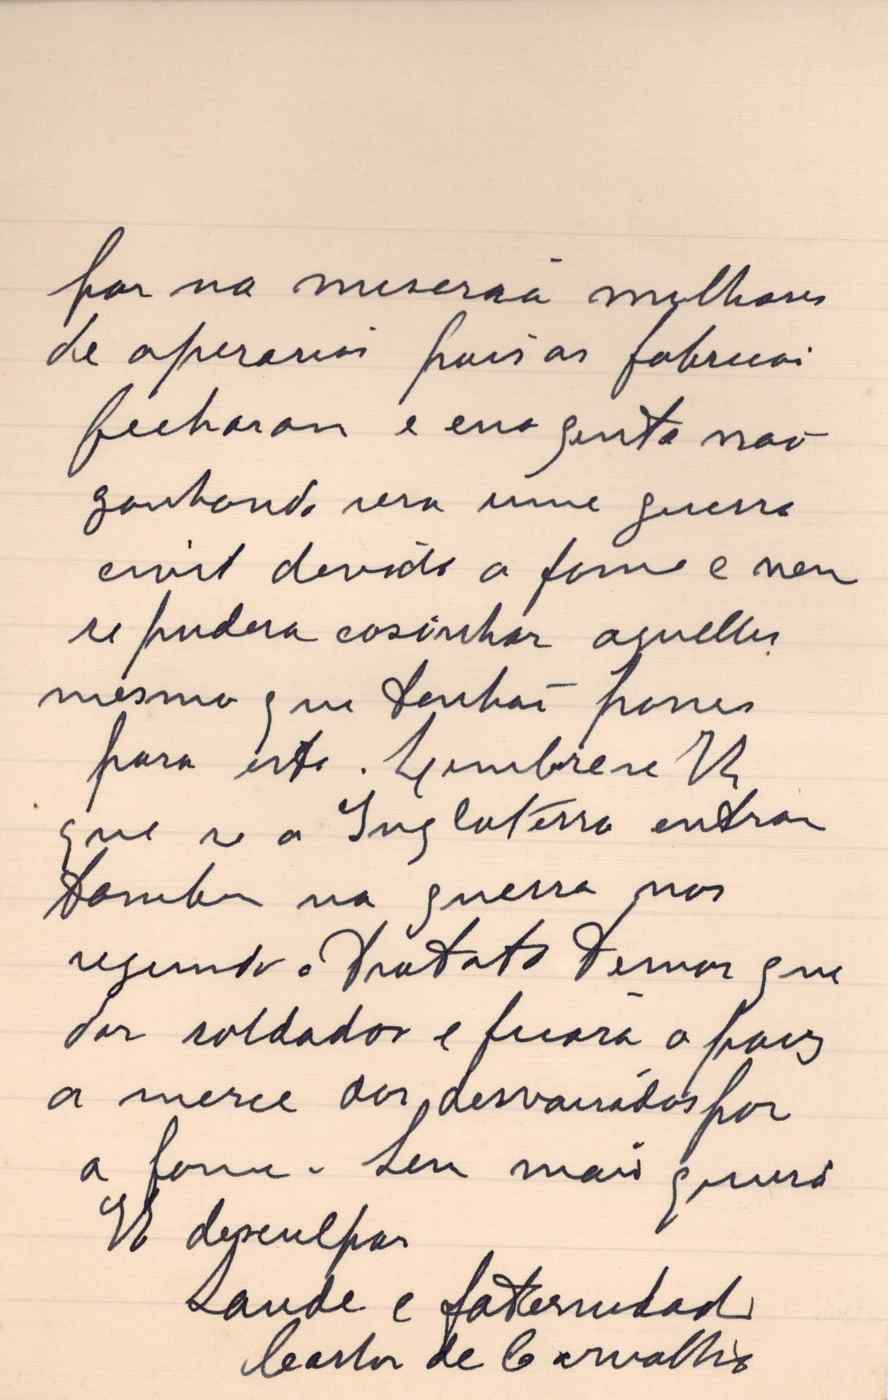 por na miseria milhares
de operarios pois as fabricas
fecharam e essa gente não
ganhando sera uma guerra
civil devido a fome e nem
se pudera cosinhar aquelles
mesmo que tenhaõ posses
para isto. Lembrese VE
que se a Inglaterra entrar
tambem na guerra nos
segundo o tratato temos que
dar soldados e ficará o paiz
a merce dos desvairados por
a fome. Sem mais queira
VE desculpar
Saude e faternidade
Carlos de Carvalho